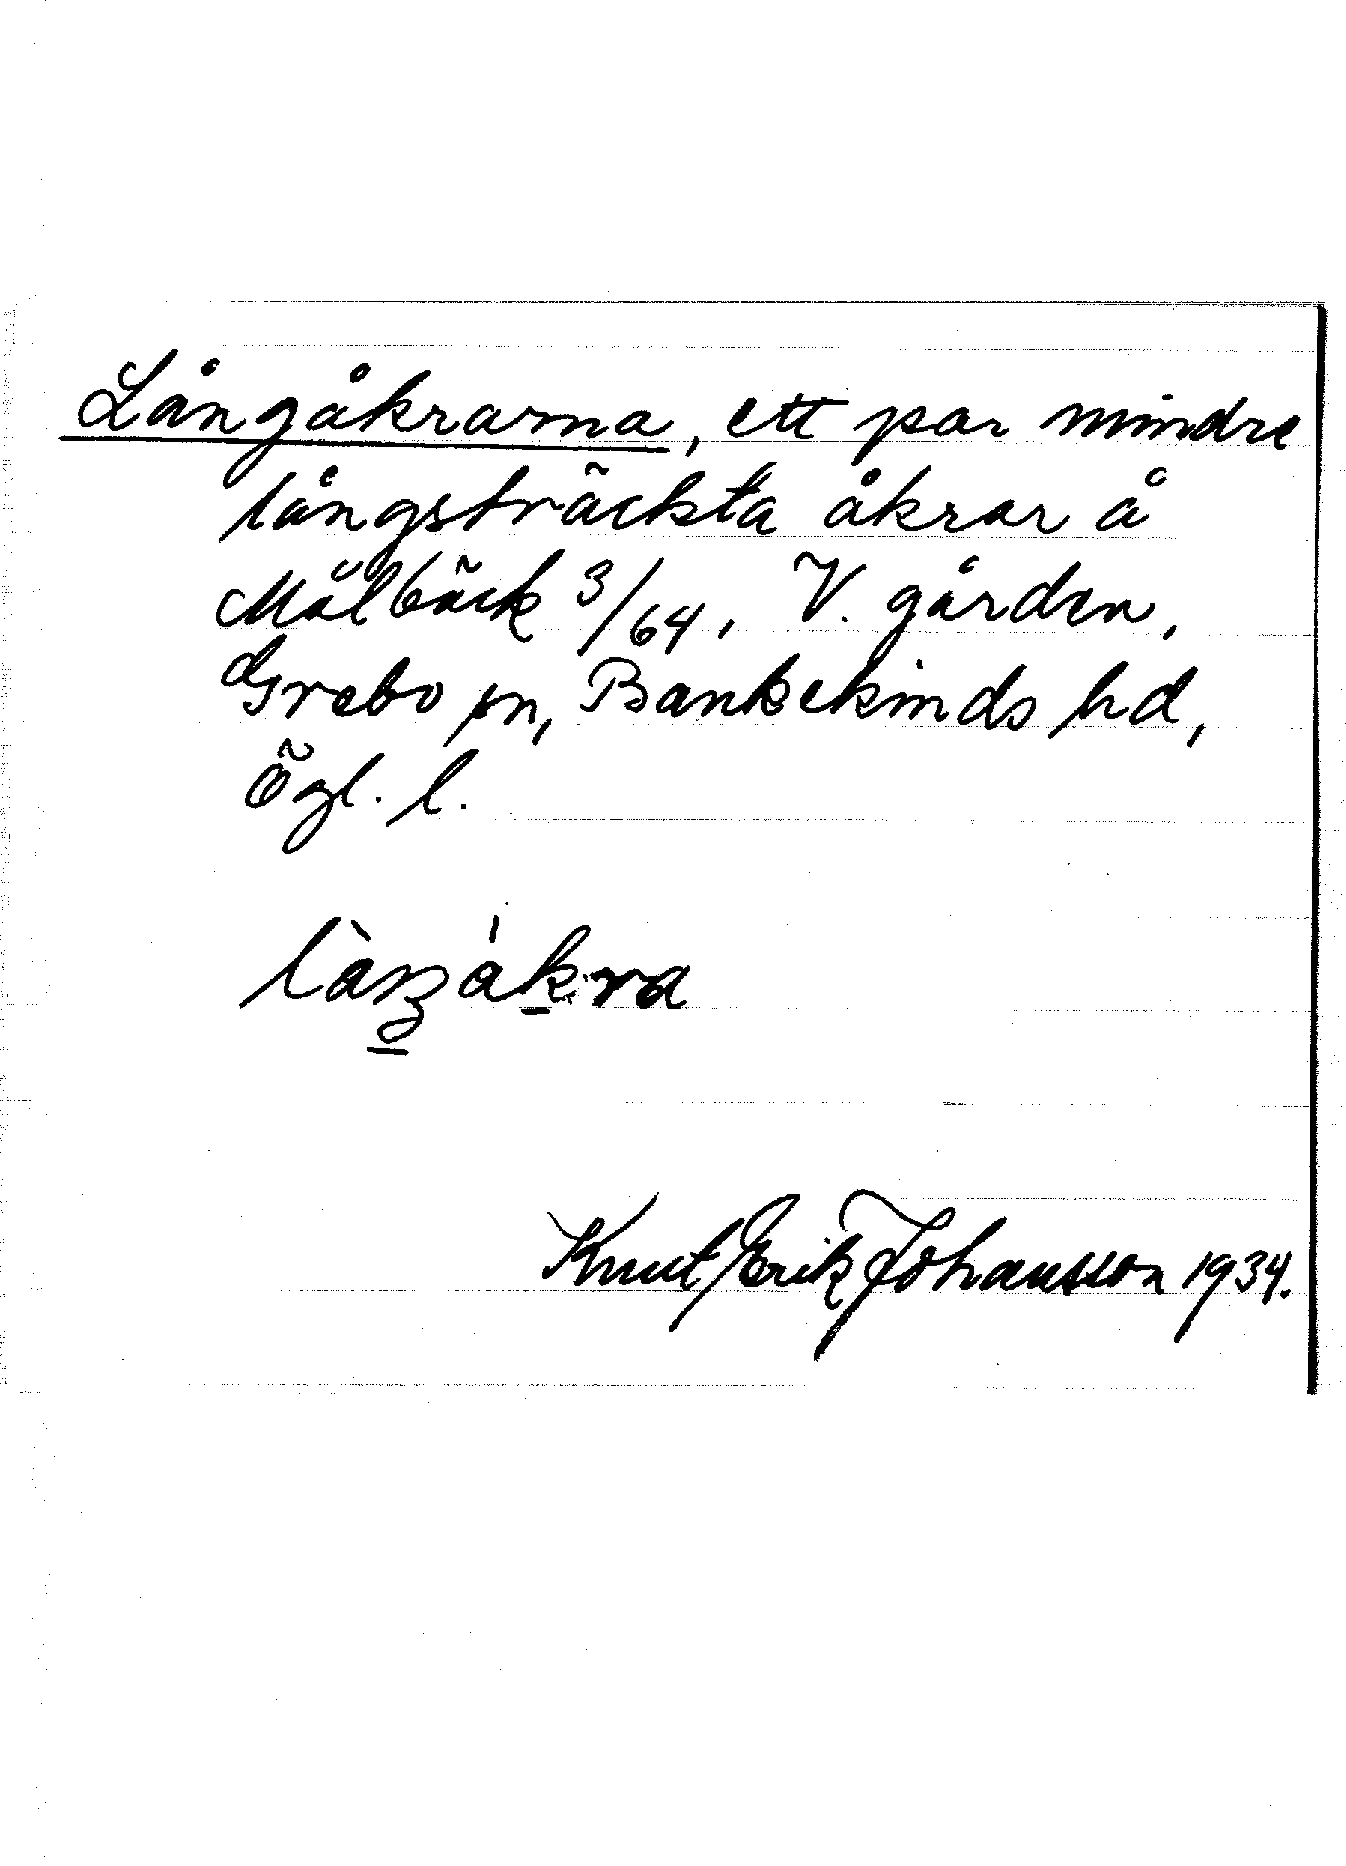 Långåkrarna, ett par mindre
långsträckta åkrar å
Målbäck 3/64, V. gården,
Grebo sn, Bankekinds hd,
Ögl. l.
Knut Erik Johansson 1934.